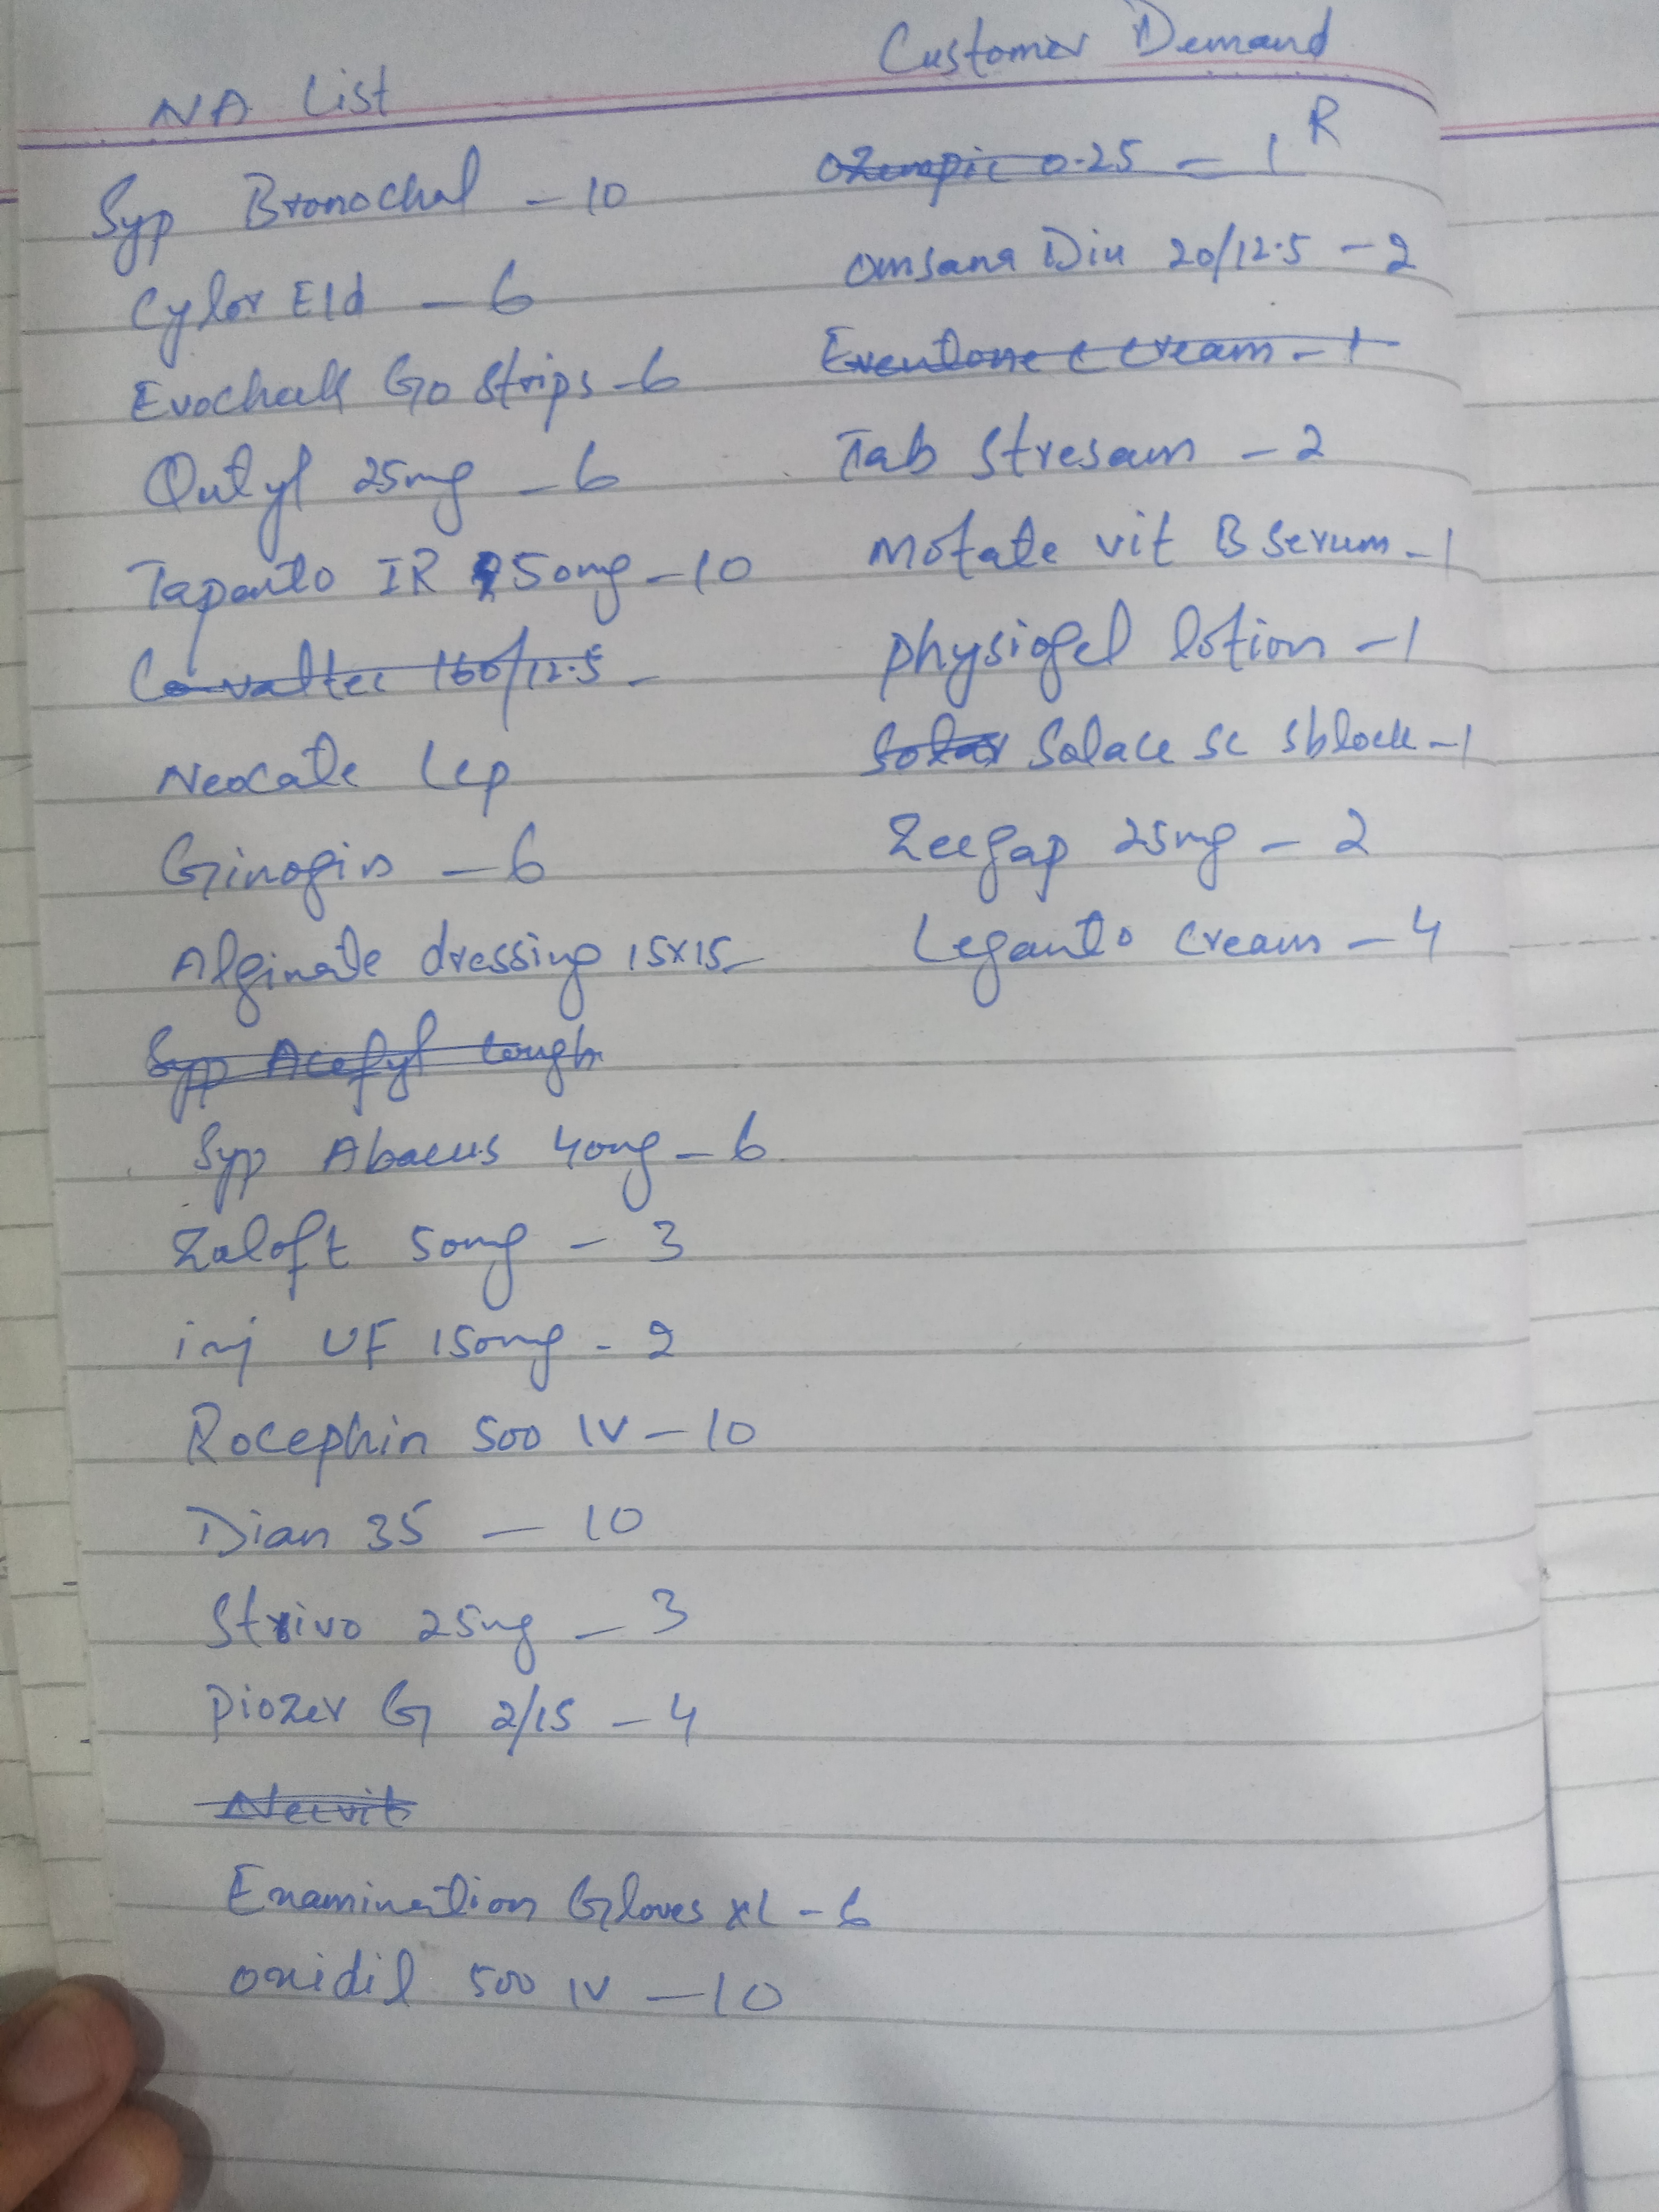 NA List
Syp Bronochal - 10
Cylor Eld - 6
Evocheck Go Strips - 6
Qutyl 25mg - 6
Tapento IR 50mg - 10
Co-valtec 160/12.5 -
Neocate Lcp
Ginogin - 6
Alginate dressing 15x15 -
Syp Acefyl Cough
Syp Abacus 40mg - 6
Zaloft 50mg - 3
inj UF 150mg - 2
Rocephin 500 IV - 10
Dian 35 - 10
Strivo 25mg - 3
Piozer G 2/15 - 4
Neevit
Examination Gloves XL - 6
oxidil 500 IV - 10
Customer Demand
Ozempic 0.25 - 1 R
Omsana Diu 20/12.5 - 2
cream - 1
Tab Stresam - 2
Motate vit B Serum - 1
Physiogel lotion - 1
Solace sc sblock - 1
Zeegap 25mg - 2
Leganto cream - 4